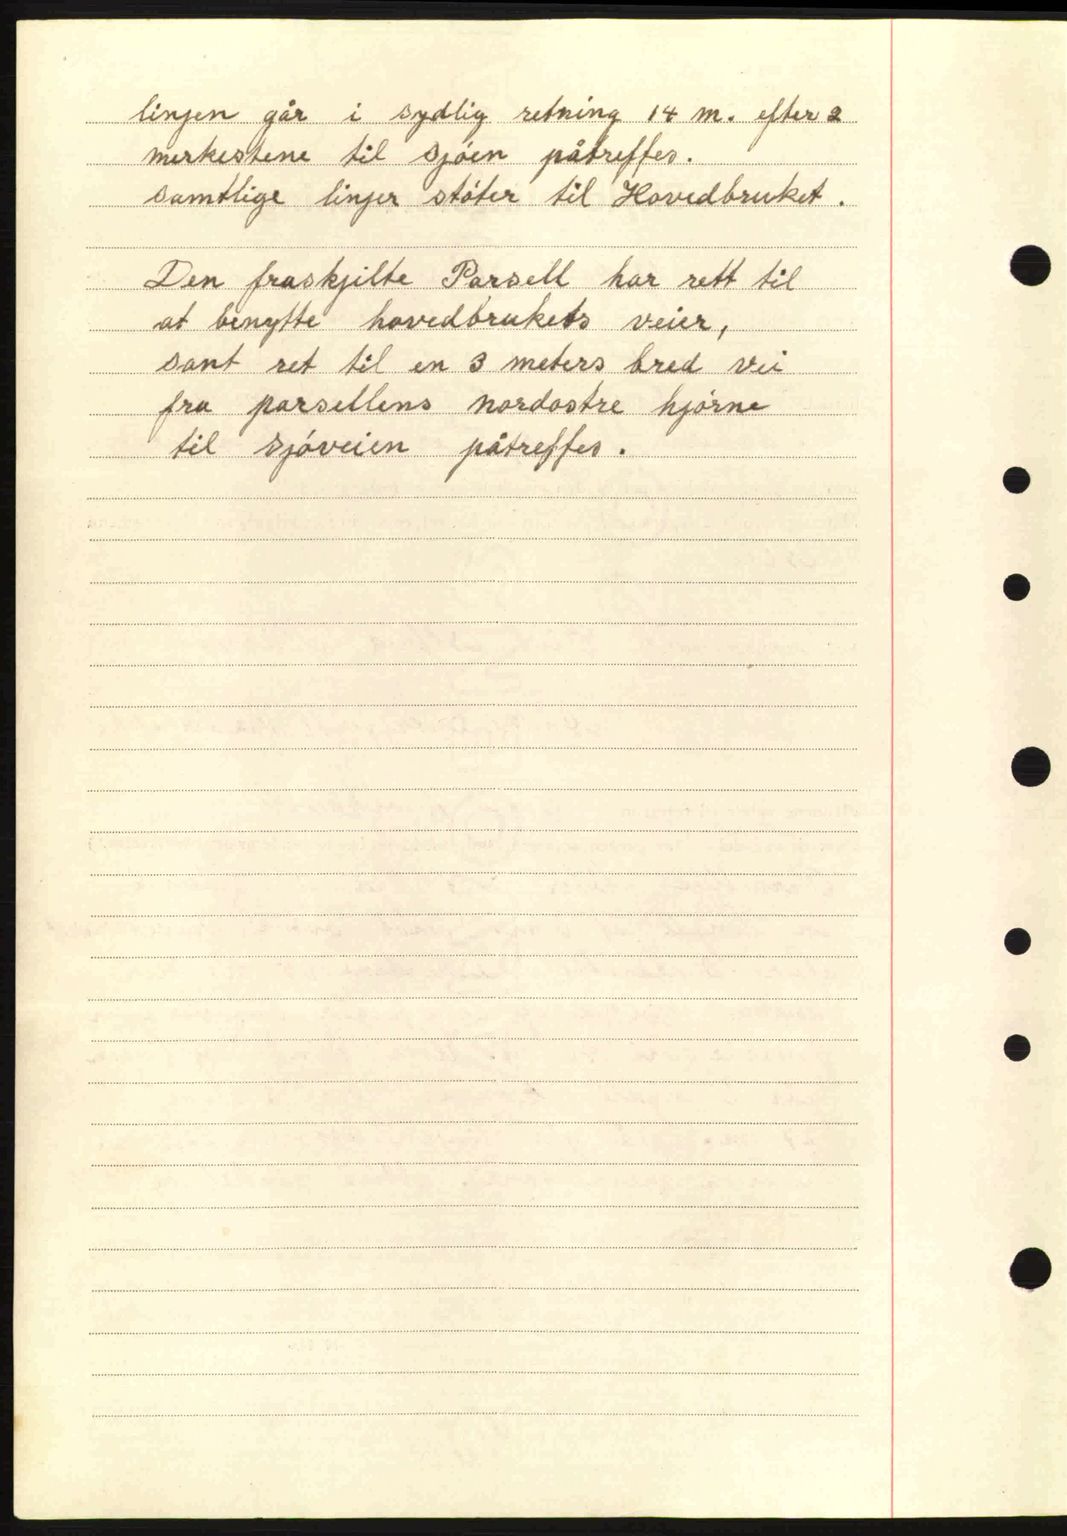 linjen går i sydlig retning 14 m. efter 2
merkestene til sjöen påtreffes.
samtlige linjer stöter til Hovedbruket.
Den fraskjilte Parsell har rett til
at benytte hovedbrukets veier,
samt ret til en 3 meters bred vei
fra parsellens nordöstre hjörne
til sjöveien påtreffes.